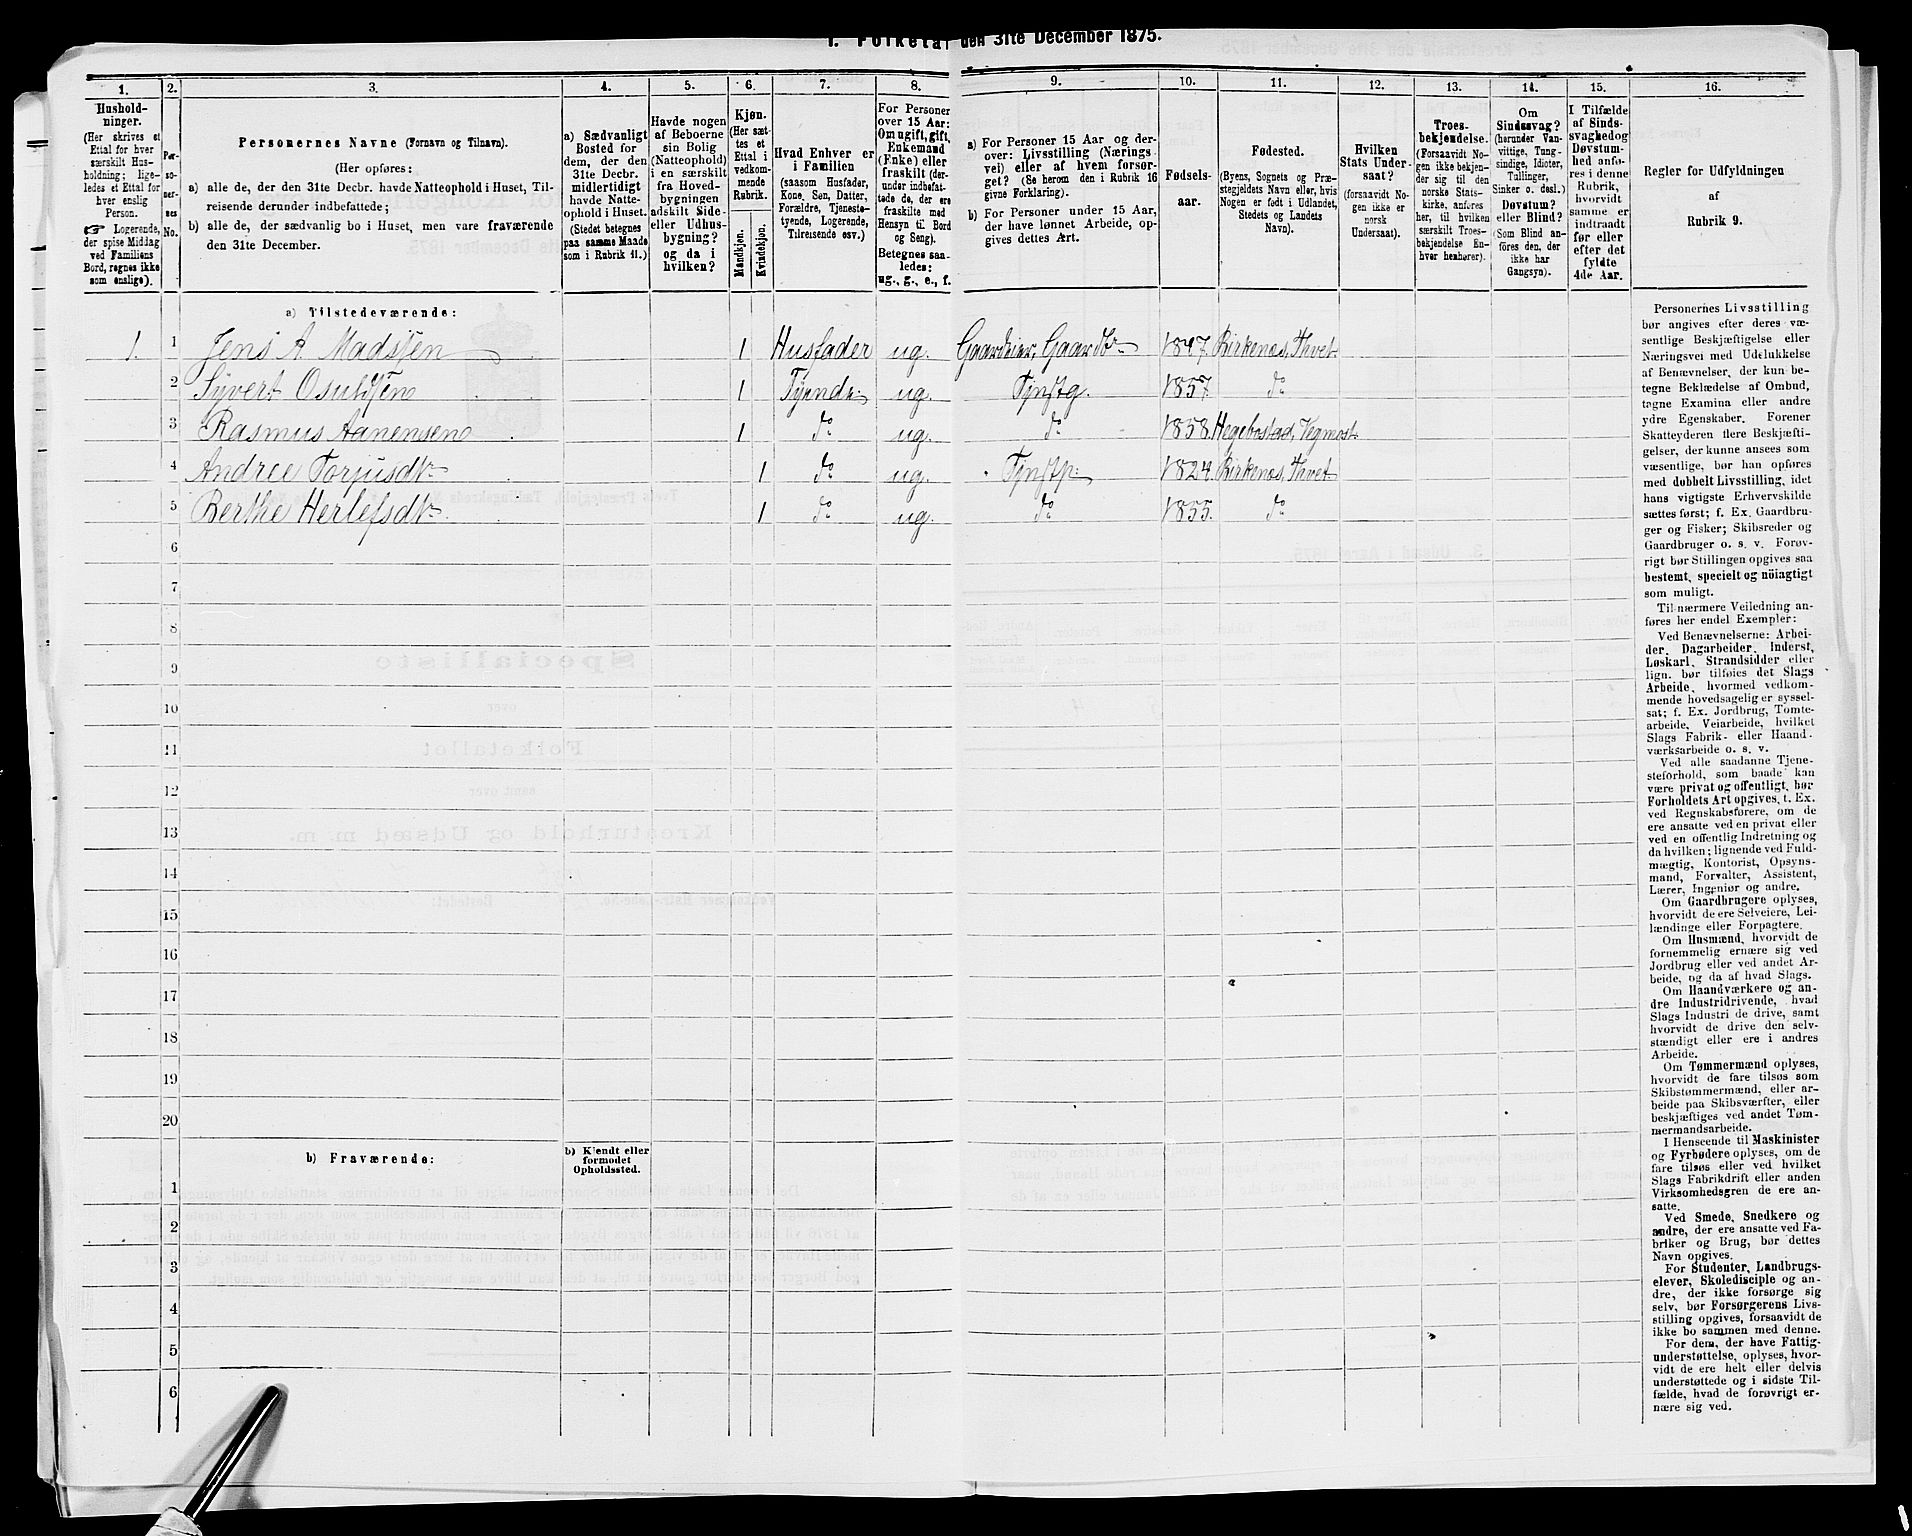 1. Folketal den 31te December 1875.
1. 2. 3. 4. 5. 6. 7. 8. 9. 10. 11. 12. 13. 14. 15. 16.
Hushold-
ninger.
(Her skrives et
Ettal for hver
særskilt Hus-
holdning; lige-
ledes et Ettal for
hver enslig
Person.
☞ Logerende,
der spise Middag
ved Familiens
Bord, regnes ikke
som enslige).
Per-
so-
ner-
nes
No.
Personernes Navne (Fornavn og Tilnavn).
(Her opføres:
a) alle de, der den 31te Decbr. havde Natteophold i Huset, Til-
reisende derunder indbefattede;
b) alle de, der sædvanlig bo i Huset, men vare fraværende
den 31te December.
a) Sædvanligt
Bosted for
dem, der den
31te Decbr.
midlertidigt
havde Natte-
ophold i Huset.
(Stedet betegnes
paa samme Maade
som i Rubrik 11.)
Havde nogen
af Beboerne
sin Bolig
(Natteophold)
i en særskilt
fra Hoved-
bygningen
adskilt Side-
eller Udhus-
bygning?
og da i
hvilken?
Kjøn.
(Her sæt-
tes et
Ettal i
vedkom-
mende
Rubrik.
Mandkjøn.
Kvindekjøn.
Hvad Enhver er
i Familien
(saasom Husfader,
Kone, Søn, Datter,
Forældre, Tjeneste-
tyende, Logerende,
Tilreisende osv.)
For Personer
over 15 Aar:
Om ugift, gift,
Enkemand
(Enke) eller
fraskilt (der-
under indbefat-
tede de, der ere
fraskilte med
Hensyn til Bord
og Seng).
Betegnes saa-
ledes:
ug., g., e., f.
a) For Personer 15 Aar og der-
over: Livsstilling (Nærings-
vei) eller af hvem forsør-
get? (Se herom den i Rubrik 16
givne Forklaring).
b) For Personer under 15 Aar,
der have lønnet Arbeide, op-
gives dettes Art.
Fødsels-
aar.
Fødested.
(Byens, Sognets og Præ-
stegjeldets Navn eller, hvis
Nogen er født i Udlandet,
Stedets og Landets
Navn).
Hvilken
Stats Under-
saat?
(forsaavidt No-
gen ikke er
norsk
Undersaat).
Troes-
bekjendelse.
(Forsaavidt No-
gen ikke bekjen-
der sig til den
norske Stats-
kirke, anføres
her, til hvilken
særskilt Troes-
bekjendelse En-
hver henhører).
Om
Sindssvag?
(herunder Van-
vittige, Tung-
sindige, Idioter,
Tullinger,
Sinker o. desl.)
Døvstum?
eller Blind?
(Som Blind an-
føres den, der
ikke har
Gangsyn).
I Tilfælde
af Sinds-
svaghed og
Døvstum-
hed anfø-
res i denne
Rubrik,
hvorvidt
samme er
indtraadt
før eller
efter det
fyldte
4de Aar.
Regler for Udfyldningen
af
Rubrik 9.
a) Tilstedeværende:
1. 1 Jens A. Madssen 1 Husfader ug. Gaardeier, 1847. Birkenæs, Thvet
2 Syvert Osulssen 1 Tyende ug. 1857. do
3 Rasmus Aanensen 1 do ug. do 1858. Hegebostad,
4 Andrea Torjusdtr 1 do ug. 1824. Birkenæs, Thvet
5 Berthe Herlefsdtr. 1 do ug. do 1855. do
6
7
8
9
10
11
12
13
14
15
16
17
18
19
20
b) Fraværende:
b) Kjendt eller
formodet
Opholdssted.
1
2
3
4
5
6
Personernes Livsstilling
bør angives efter deres væ-
sentlige Beskjæftigelse eller
Næringsvei med Udelukkelse
af Benævnelser, der kun be-
tegne Beklædelse af Ombud,
tagne Examina eller andre
ydre Egenskaber. Forener
Skatteyderen flere Beskjæfti-
gelser, der kunne ansees som
væsentlige, bør han opføres
med dobbelt Livsstilling, idet
hans vigtigste Erhvervskilde
sættes først; f. Ex. Gaardbru-
ger og Fisker; Skibsreder og
Gaardbruger o. s. v. Forøv-
rigt bør Stillingen opgives saa
bestemt, specielt og nöiagtigt
som muligt.
Til nærmere Veiledning an-
føres her endel Exempler:
Ved Benævnelserne: Arbei-
der, Dagarbeider, Inderst,
Løskarl, Strandsidder eller
lign. bør tilføies det Slags
Arbeide, hvormed vedkom-
mende hovedsagelig er syssel-
sat; f. Ex. Jordbrug, Tomte-
arbeide, Veiarbeide, hvilket
Slags Fabrik- eller Haand-
værksarbeide o. s. v.
Ved alle saadanne Tjene-
steforhold, som baade kan
være privat og offentligt, bør
Forholdets Art opgives, t. Ex.
ved Regnskabsførere, om de
ere ansatte ved en privat eller
ved en offentlig Indretning og
da hvilken; lignende ved Fuld-
mægtig, Kontorist, Opsyns-
mand, Forvalter, Assistent,
Lærer, Ingeniør og andre.
Om Gaardbrugere oplyses,
hvorvidt de ere Selveiere, Lei-
lændinge eller Forpagtere.
Om Husmænd, hvorvidt de
fornemmelig ernære sig ved
Jordbrug eller ved andet Ar-
beide, og da af hvad Slags.
Om Haandværkere og an-
dre Industridrivende, hvad
Slags Industri de drive, samt
hvorvidt de drive den selv-
stændigt eller ere i andres
Arbeide.
Om Tømmermænd oplyses,
hvorvidt de fare tilsøs som
Skibstømmermænd, eller ar-
beide paa Skibsværfter, eller
beskjæftiges ved andet Tøm-
mermandsarbeide.
I Henseende til Maskinister
og Fyrbødere oplyses, om de
fare tilsøs eller ved hvilket
Slags Fabrikdrift eller anden
Virksomhedsgren de ere an-
satte.
Ved Smede, Snedkere og
andre, der ere ansatte ved Fa-
briker og Brug, bør dettes
Navn opgives.
For Studenter, Landbrugs-
elever, Skoledisciple og an-
dre, der ikke forsørge sig
selv, bør Forsørgerens Livs-
stilling opgives, forsaavidt de
ikke bo sammen med denne.
For dem, der have Fattig-
understøttelse, oplyses, hvor-
vidt de ere helt eller delvis
understøttede og i sidste Til-
fælde, hvad de forøvrigt er-
nære sig ved.